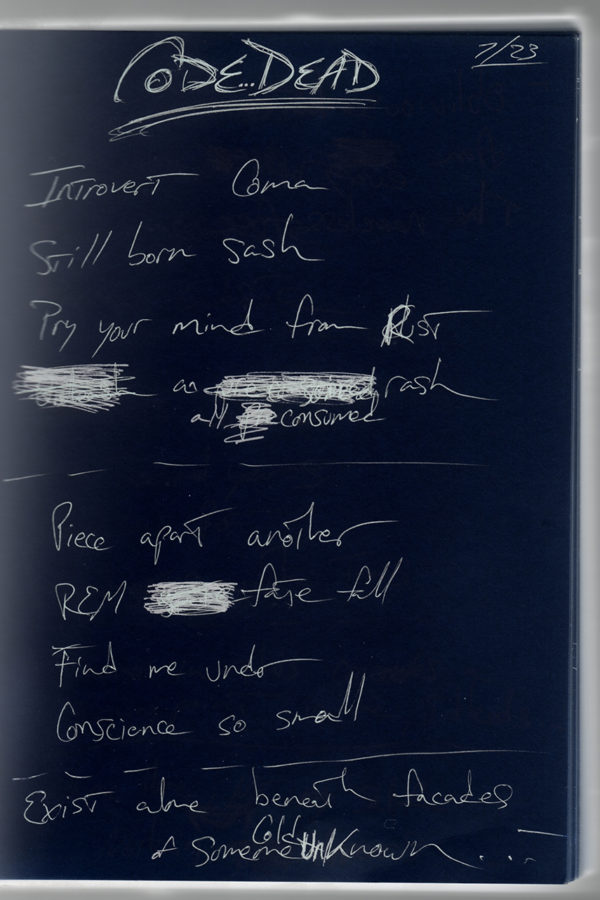 7/23
CODE...DEAD
Introvert Coma
Still born sash
Pry your mind from Rust
an rash
all consumed
Piece apart another
REM fall
Find me under
Conscience so small
Exist alone beneath facades
Cold
of someone UnKnown...